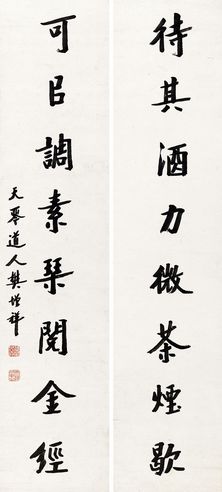 待其酒力微茶煙歇
可㠯調素琴閱金經
天琴道人樊增祥